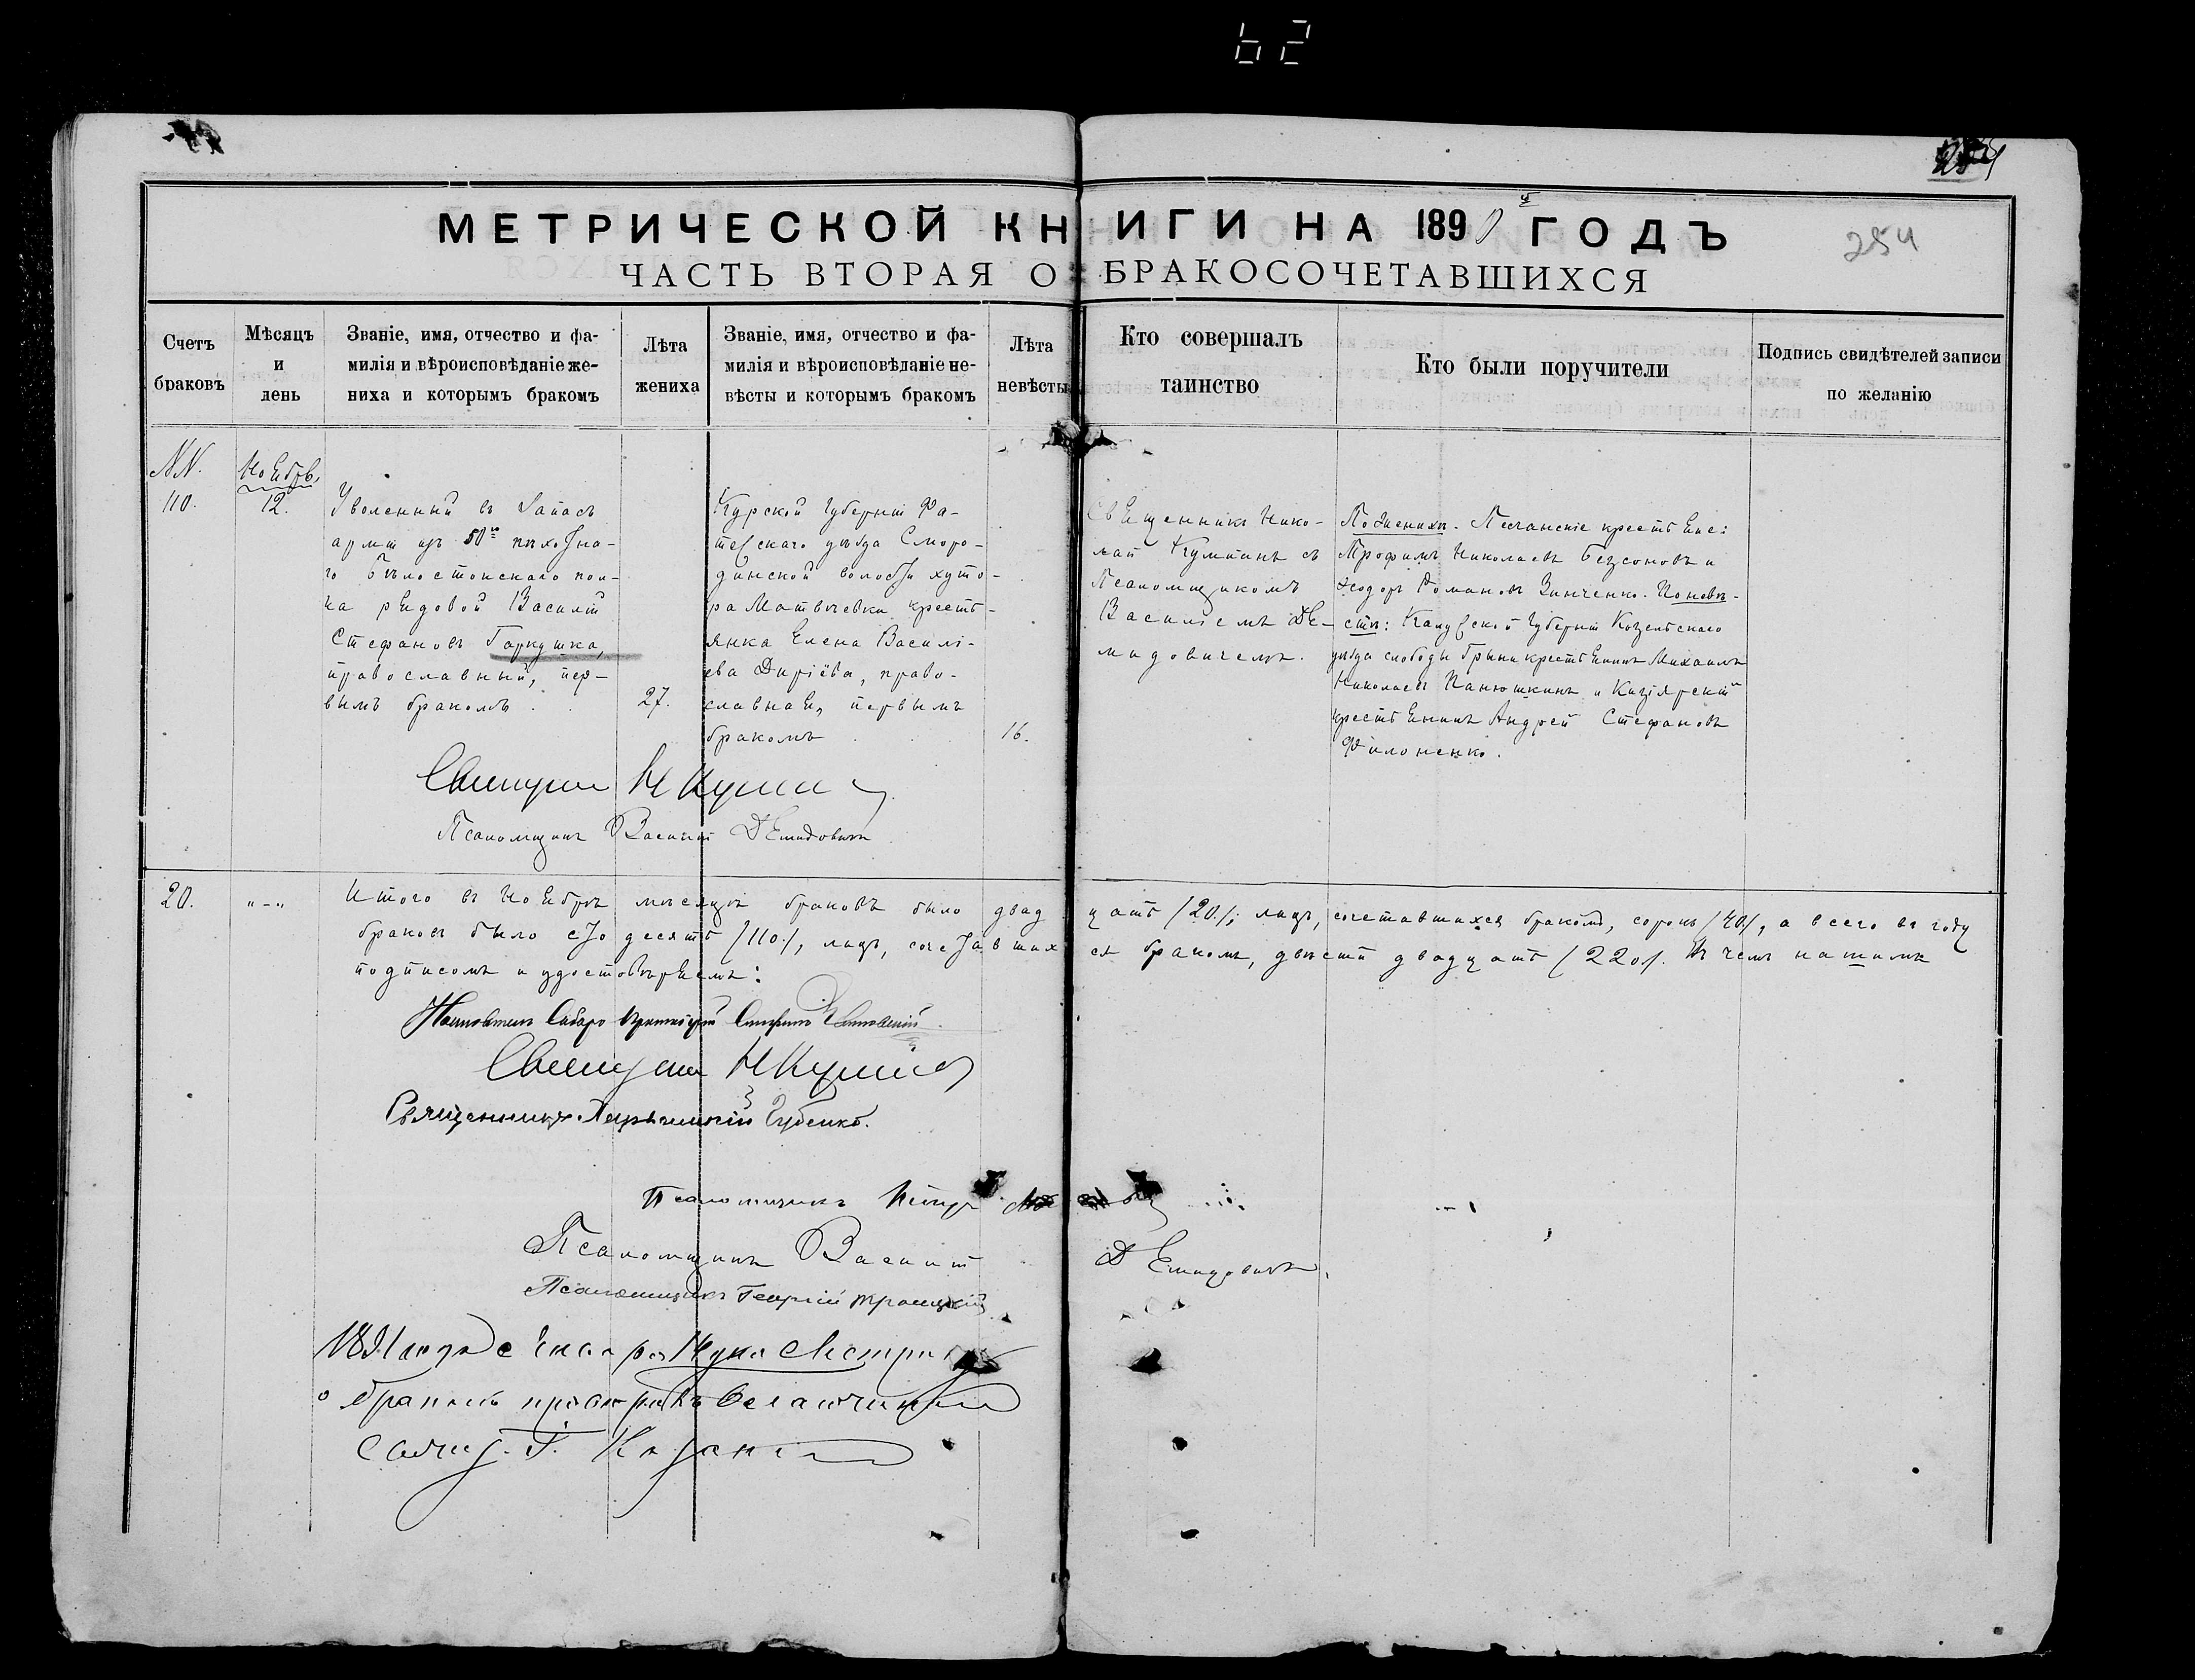 62
МЕТРИЧЕСКОЙ КНИГИ НА 1890й ГОДЪ
254
ЧАСТЬ ВТОРАЯ О БРАКОСОЧЕТАВШИХСЯ
Счетъ
браковъ
Мѣсяцъ
и
день
Званіе, имя, отчество и фа-
милія и вѣроисповѣданіе же-
ниха и которымъ бракомъ
Лѣта
жениха
Званіе, имя, отчество и фа-
милія и вѣроисповѣданіе не-
вѣсты и которымъ бракомъ
Лѣта
невѣсты
Кто совершалъ
таинство
Кто были поручители
Подпись свидѣтелей записи
по желанію
NN.
110.
Ноября
12.
Уволенный въ запасъ
арміи изъ 50го пѣхотна-
го Бѣлостокскаго пол-
ка рядовой Василій
Стефановъ Гаркушка,
православный, пер-
вымъ бракомъ
27.
Курской губерніи Фа-
тежскаго уѣзда Сморо-
динской волости хуто-
ра Матвѣевки кресть-
янка Елена Василі-
ева Диріева, право-
славная, первымъ
бракомъ
16.
Священникъ Нико-
лай Кумпанъ съ
Псаломщикомъ
Василіемъ Де-
мидовичемъ.
По женихѣ. Песчанскіе крестьяне:
Трофимъ Николаевъ Безсоновъ и
Ѳеодоръ Романовъ Зинченко. По невѣ-
стѣ: Калужской губерніи Козельскаго
уѣзда слободы Грыни крестьянинъ Михаилъ
Николаевъ Панюшкинъ и Кизіярскій
крестьянинъ Андрей Стефановъ
Филоненко.
Священникъ Н Кумпан
Псаломщикъ Василій Демидовичъ
20.
"-"
Итого въ Ноябрѣ мѣсяцѣ браковъ было двадцать /20/; лицъ, сочетавшихся бракомъ, сорокъ /40/, а всего въ году
браковъ было сто десять /110/, лицъ, сочетавшихся бракомъ, двѣсти двадцать /220/. Въ чемъ нашимъ
подписомъ и удостовѣряемъ:
Священникъ Н Кумпан
Священникъ Губенко.
Псаломщикъ Петръ
Псаломщикъ Василій Демидовичъ
Псаломщикъ Георгій Троицкій
1891 года